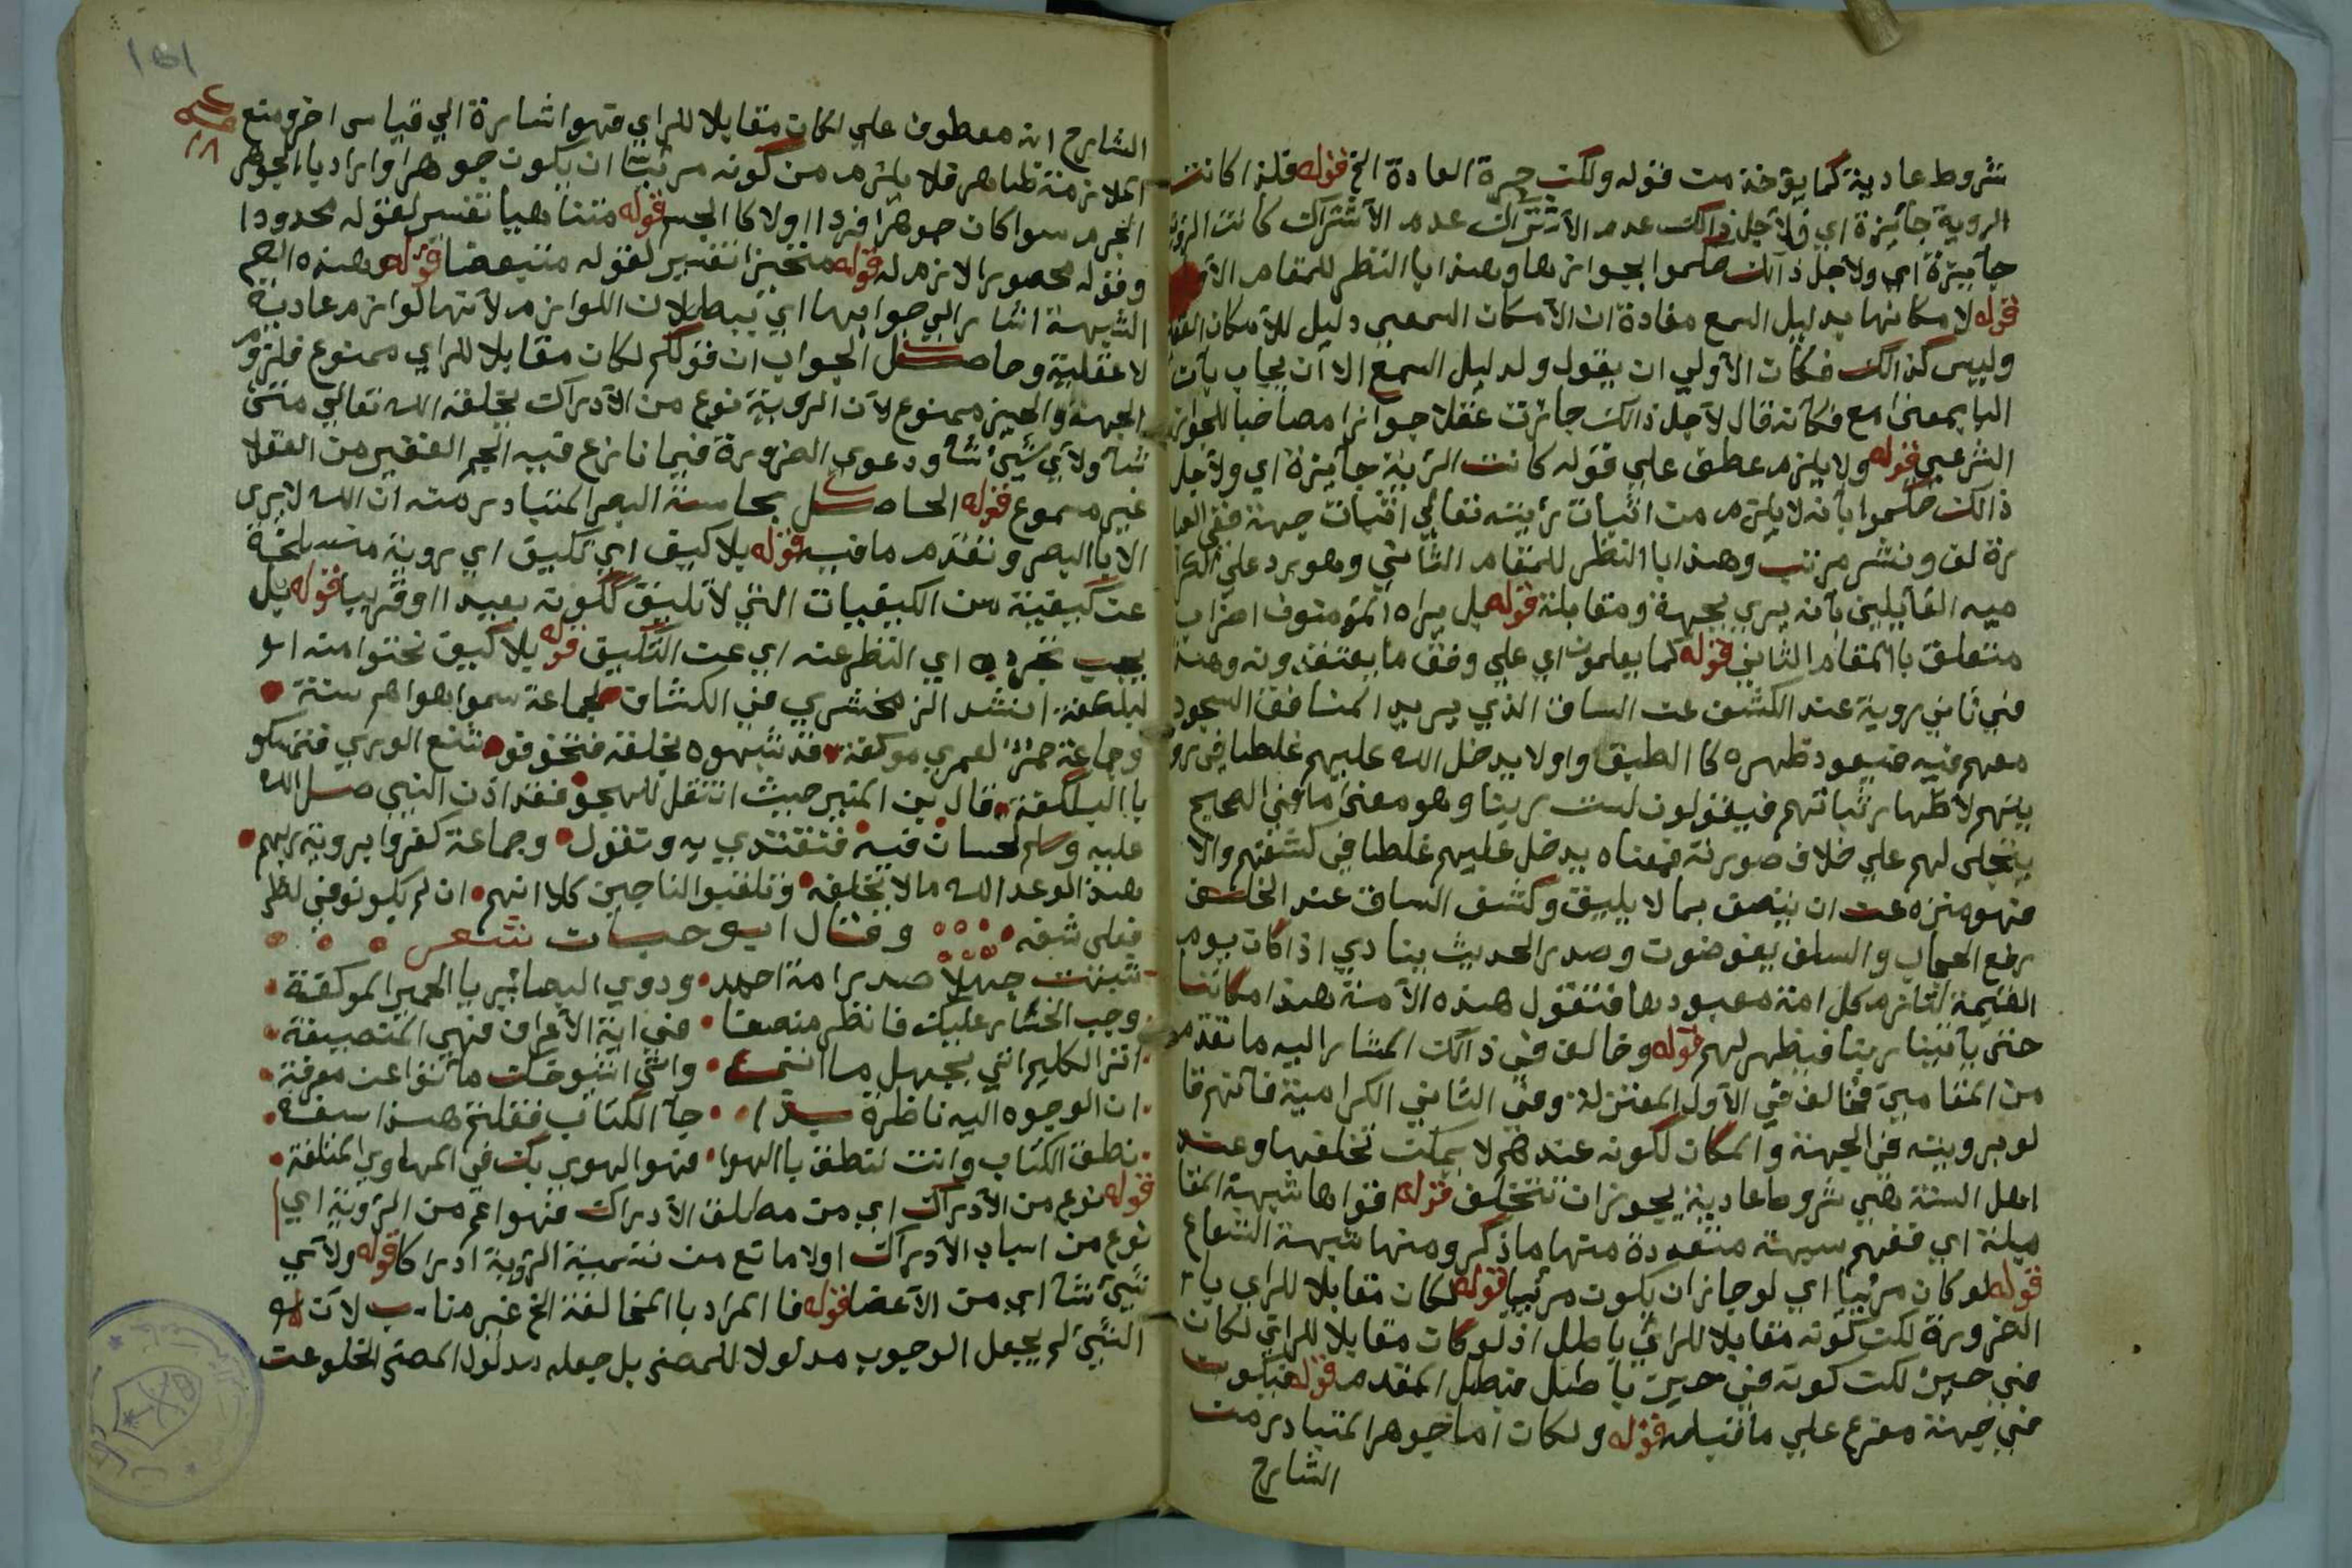 شروط عادية كما يؤخذ من قوله ولكن جرة العادة الخ قوله فلذا كانت
الروية جائزة اي فلأجل ذالك عدم الأشتراك عدم الأشتراك كانت الروية
جآئزة اي ولأجل ذالك حكموا بجوازها وهذا با النظر للمقام الأول
قوله لا مكانها بدليل السمع مفادة ان الأمكان السمعي دليل للأمكان العقلي
وليس كذالك فكان الأولي ان يقول ولدليل السمع الا أن يجاب بأن
البا بمعنى مع فكأنه قال لأجل ذالك جازت عقلا جوازا مصاحبا للجواز
الشرعي قوله ولا يلزم عطف علي قوله كانت الرئية جآئزة اي ولأجل
ذالك حكموا بأنه لا يلزم من اثبات رئيته تعالي اثبات جهة ففي العبا
رة لف ونشر مرتب وهذا با النظر للمقام الثاني وهو يرد علي الكرا
ميه القآيلين بأنه يري بجهة ومقابلة قوله بل يراه المؤمنون اضراب
متعلق با المقام الثاني قوله كما يعلمون اي علي وفق ما يعتقدونه وهذا
في ثاني روية عند الكشف عن الساق الذي يريد المنافق السجود
معهم فيه فيعود ظهره كا الطبق واولا يدخل الله عليهم غلطا في رو
يتهم لاظهار ثباتهم فيقولون لست ربنا وهو معنى ما في الصحيح
يتجلى لهم علي خلاف صورته فمعناه يدخل عليهم غلطا في كشفهم والا
فهو منزه عن ان يتصف بما لا يليق وكشف الساق عند الخلف
رفع الحجاب والسلف يفوضون وصدر الحديث ينادي اذا كان يوم
القيمة لتلزم كل امة معبودها فتقول هذه الأمنة هذا مكاننا
حتى يأتينا ربنا فيظهر لهم قوله وخالف في ذالك المشار اليه ما تقدم
من المقامين فخالف في الأول المعتزلة وفي الثاني الكرامية فأنهم قا
لو برويته في الجهة والمكان لكونه عندهم لا يمكن تخلفها وعند
اهل السنة هي شروط عادية يجوز ان تتخلف قوله اقواها شبهة المقا
بلة اي فلهم شبهة متعددة منها ما ذكر ومنها شبهة الشعاع
قوله لو كان مرئيا اي لو جاز ان يكون مرئيا قوله لكان مقابلا للراي با
الضرورة لكن كونه مقابلا للرائي باطل اذ لو كان مقابلا للرائي لكان
في حيز لكن كونه في حيز باطل فبطل المقدم قوله فيكون
في جهة مفرع علي ما قبله قوله ولكان اما جوهرا المتبادر من
الشارح
الشارح انه معطوف علي لكان مقابلا للراي فهو اشارة الي قياس اخر ومنع
الملازمة ظاهر فلا يلزم من كونه مرئيا ان يكون جوهرا واراد با الجوهر
الجرم سوا كان جوهرا فردا اولا كا الجسم قوله متناهيا تفسير لقوله محدودا
وقوله محصورا لازم له قوله متحيزا تفسير لقوله متبعضا قوله وهذه الجم
الشبهة اشار الي جوابها اي تبطل لان اللوازم لأنها لوازم عادية
لا عقلية وحاصل الجواب ان قولكم لكان مقابلا للراي ممنوع فلزوم
الجهة والحيز ممنوع لأن الروية نوع من الأدراك يخلقه الله تعالي متى
شآ ولأي شيئ شآ ودعوى الضرورة فيما نازع فيه الجم الغفير من العقلا
غير مسموع قوله الحاصل بحاسة البصر المتبادر منه ان الله لا يرى
الا با البصر وتقدم ما فيه قوله بلا كيف اي تكيف اي روية منسلخة
عن كيفية من الكيفيات التي لا تليق ككونه بعيدا او قريبا قوله بل
يجب تجرده اي النظر عنه اي عن التكيف قوله بلا كيف نحتوا منه ا
لبلكفة انشد الزمخشري في الكشاف لجماعة سموا هواهم سنة
وجماعة حمر لعمري موكفة قد شبهوه بخلقه فتخوفو شنع الوري فتستروا
با البلكفة قال بن المنير حيث انتقل للهجو فقد اذن النبي صلى الله
عليه وسلم لحسان فيه فنقتدي به ونقول وجماعة كفروا بروية ربهم
هذا لوعد الله ما لا تخلفه وتلقبوا الناجين كلا انهم ان لم يكونو في لظى
فعلى شفه وقال ابو حيان شعر
شبهت جهلا صدر امة احمد وذوي البصائير با الحمير الموكفة
وجب الخسار عليك فانظر منصفا في اية الأعراف فهي المنصفة
اترا الكليم اتي بجهل ما اتى واتى شيوخك ما أتوا عن معرفة
ان الوجوه اليه ناظرة بذا جآ الكتاب فقلتم هذا سفه
نطق الكتاب وانت تنطق با الهوا فهوا الهوى بك في المهاوي المتلفة
قوله نوع من الأدراك اي من مطلق الأدراك فهو اعم من الروية اي
نوع من اسباب الأدراك اولا مانع من تسمية الروية ادراكا قوله ولأي
شيئ شآ اي من الأعضا قوله فا المراد با المخالفة الخ غير مناسب لأن
الشئ لم يجعل الوجوب مدلولا للمصنف بل جعله مدلول المصنف الخلو عن